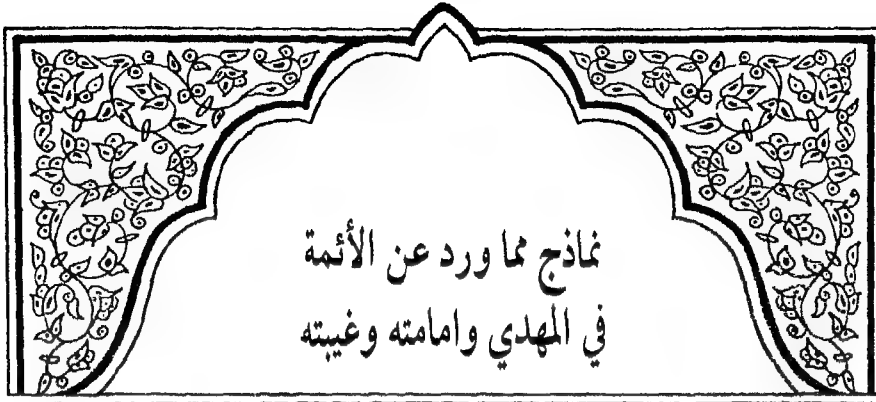 نماذج مما ورد عن الأئمة
في المهدي وامامته وغيبته